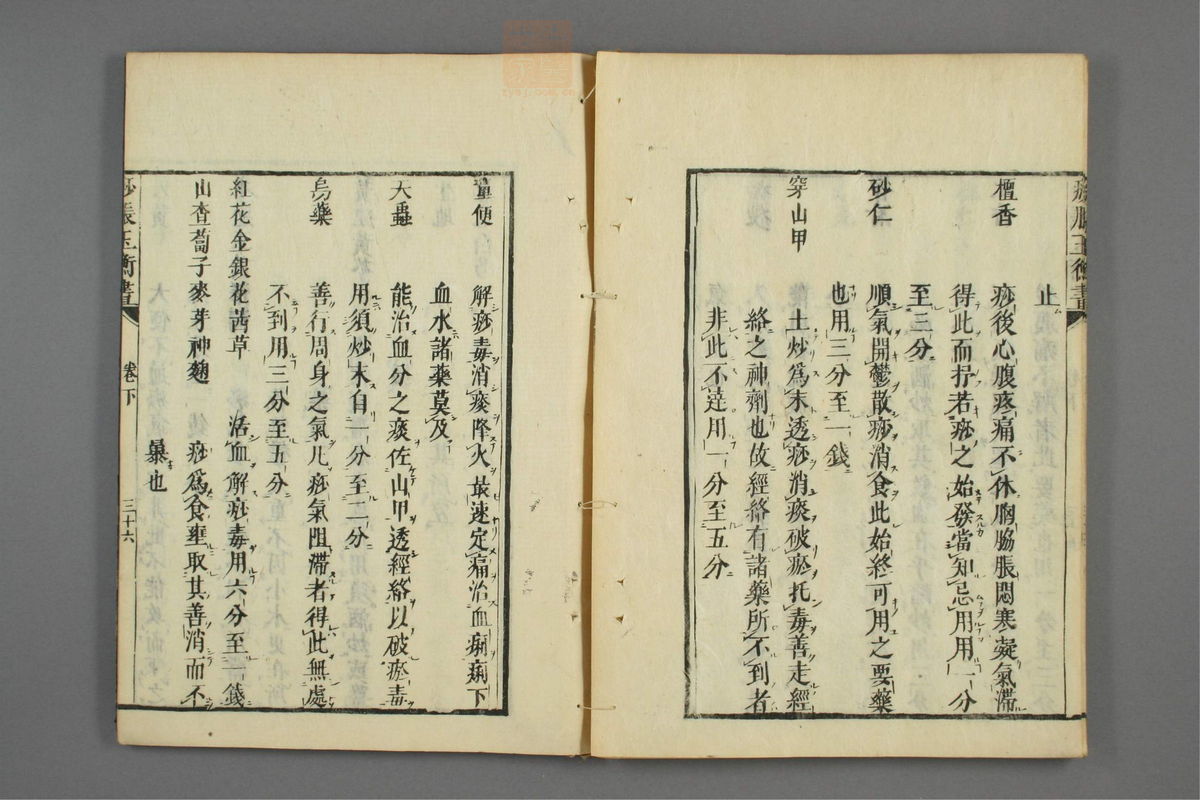 痧脹玉衡書
止
檀香
痧後心腹疼痛不休胸脇脹悶寒凝氣滯
得此而抒若痧之始發當知忌用用一分
至三分
砂仁
順氣開鬱散痧消食此始終可用之要藥
也用三分至一錢
穿山甲
土炒爲末透痧消痰破瘀托毒善走經
絡之神劑也故經絡有諸藥所不到者
非此不達用一分至五分
童便
解痧毒消瘀降火最速定痛治血痢痢下
血水諸藥莫及
大黽
能治血分之痰佐山甲透經絡以破瘀毒
用須炒末自一分至二分
烏藥
善行周身之氣凡痧氣阻滯者得此無處
不到用三分至五分
紅花金銀花茜草
活血解痧毒用六分至一錢
山查蔔子麥芽神麯
痧爲食壅取其善消而不
暴也
痧脹玉衡書
卷下
三十六